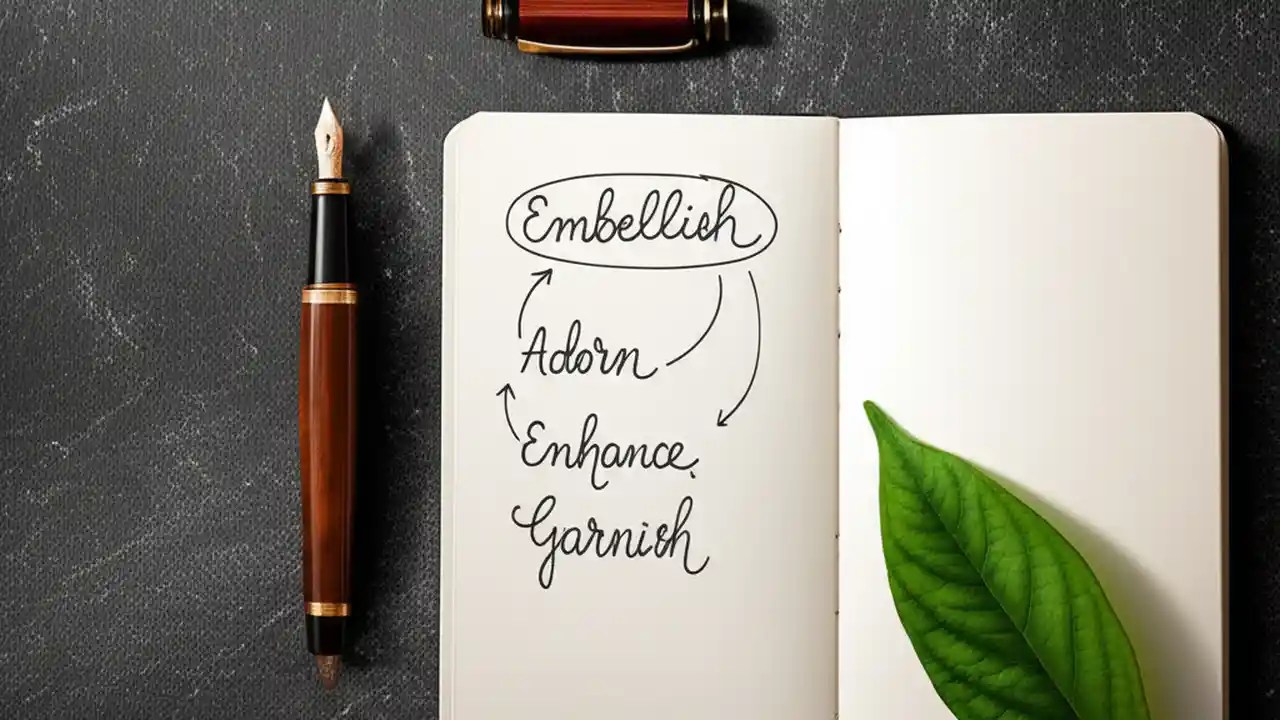 Embellish
Adorn
Enhance,
Garnish